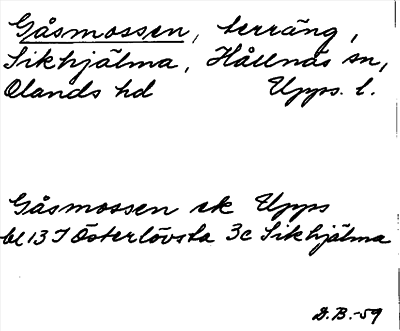 Gåsmossen, terräng,
Sikhjälma, Hållnäs sn,
Olands hd Upps. l.
Gåsmossen ek Upps
bl 13 I Österlövsta 3c Sikhjälma
D.B.-59